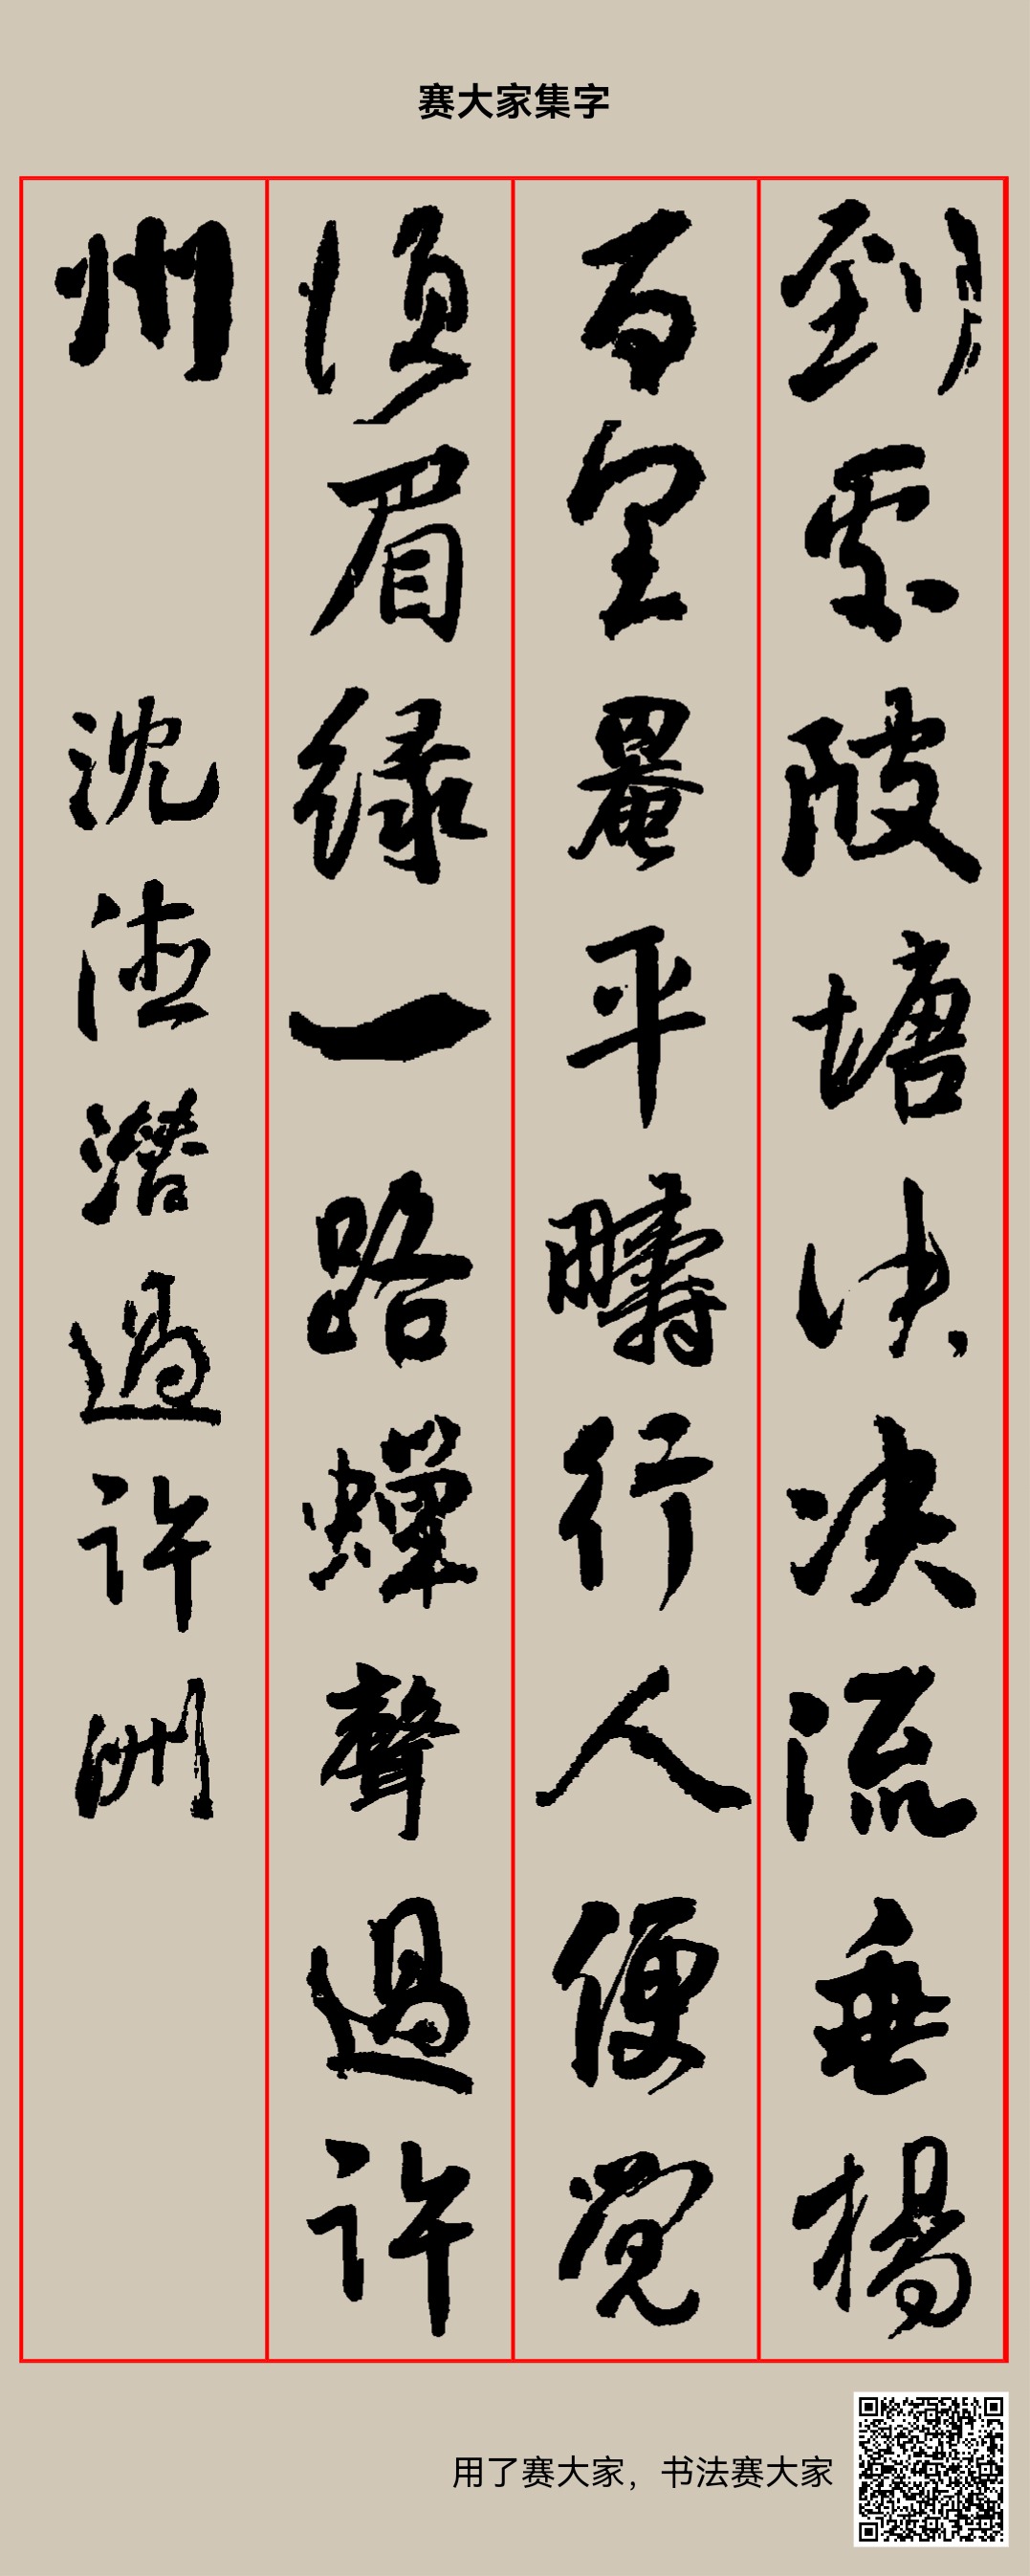 赛大家集字
到處陂塘决决流垂楊
百里罨平疇行人便覺
須眉緑一路蟬聲過許
州 沈德潛過許州
用了赛大家，书法赛大家